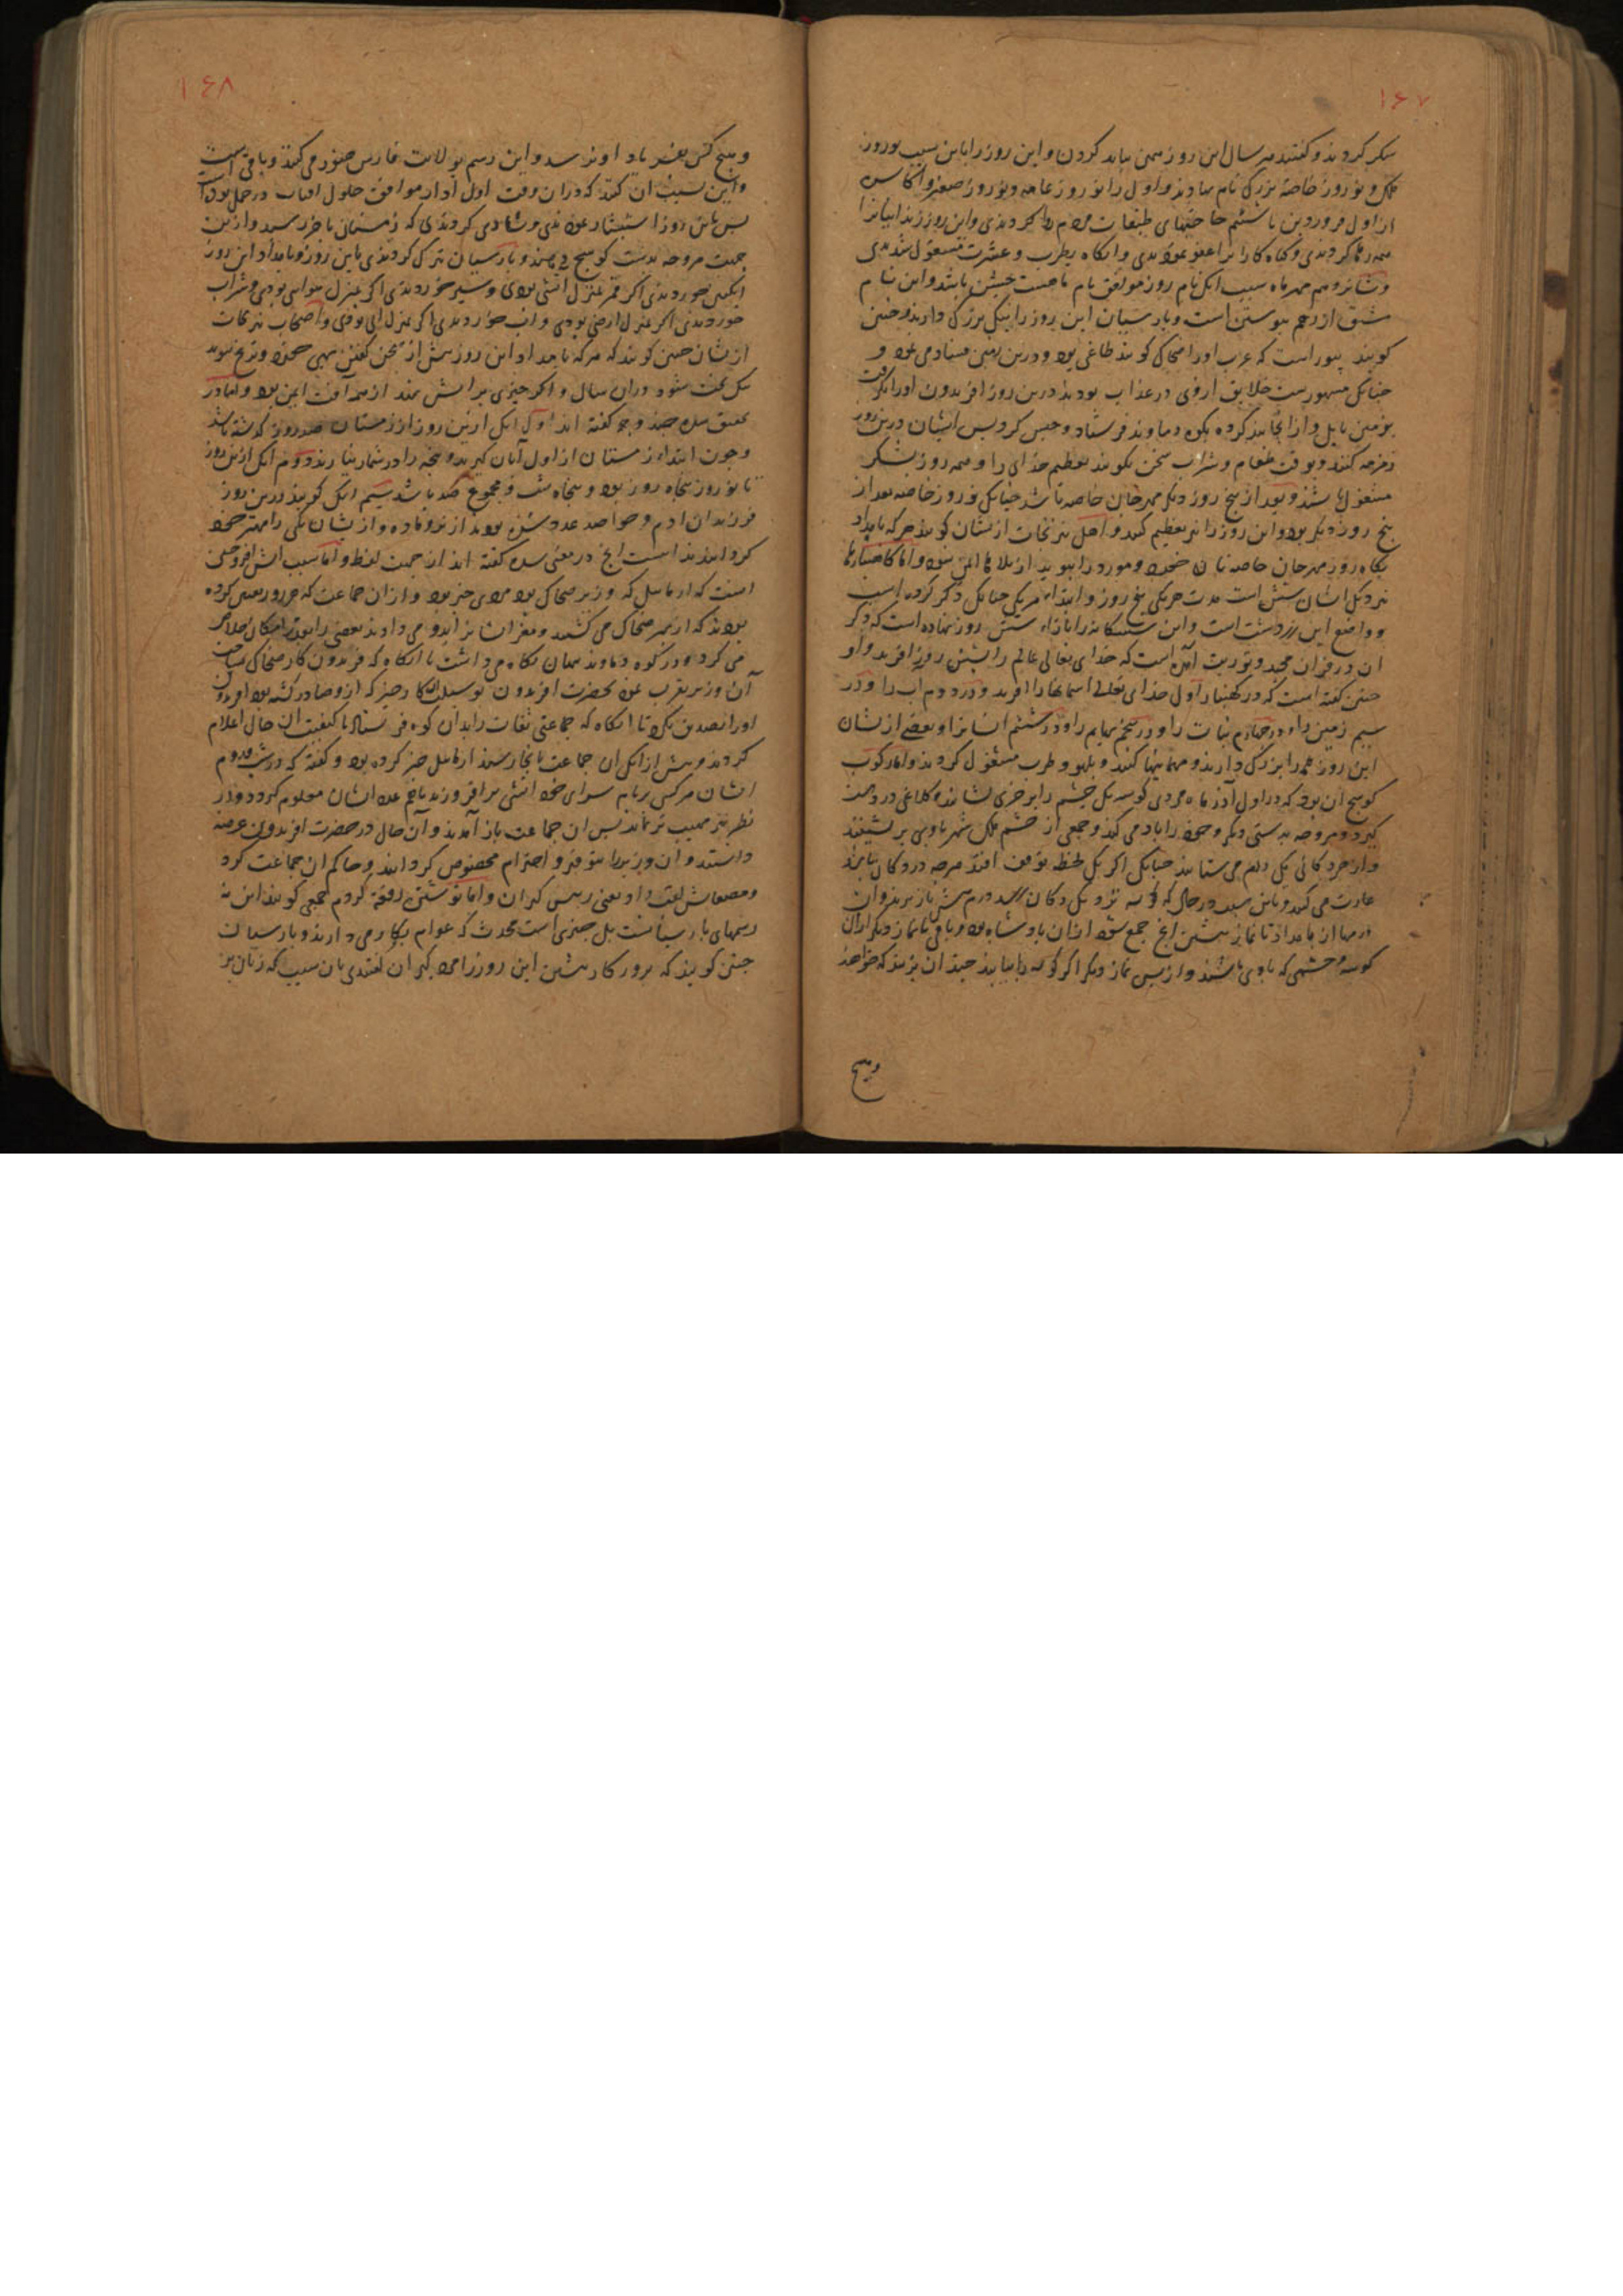 ۱۶۷
شکر کردند و گفتند هر سال این روز همین باید کردن و این روز را باین سبب نوروز
ملک و نوروز خاصه بزرگ نام نهادند و اول را نوروز عامه و نوروز صغیر و اکاسره
از اول فروردین تا ششم حاجتهای طبقات مردم روا کردندی و این روز زندانیانرا
همه رها کردندی و گناه کارانرا عفو فرمودندی و آنگاه بطرب و عشرت مشغول شدندی
و شانزدهم مهر ماه سبب آنک نام روز موافق نام ماهست جشن باشد و این نام
کویند بیوراست که عرب او را ضحاک کویند طاغی بود و درین زمین فساد می نمود و
چنانک مشهورست خلایق ازوی در عذاب بودند درین روز افریدون او را بگرفت
بزمین بابل و از آنجا بند کرده بکوه دماوند فرستاد و حبس کرد پس ایشان درین روز
زمزمه کنند و بوقت طعام و شراب سخن نکویند تعظیم خدای را و همه روز بشکر
مشغول باشند و بعد از پنج روز دیگر مهرجان خاصه باشد چنانک نوروز خاصه بعد از
پنج روز دیگر بود و این روز را نیز تعظیم کنند و اهل نیرنجات از نشان کویند هر که بامداد
پکاه روز مهرجان خاصه نان خورد و مورد را ببوید از بلاها ایمن شود و اما کاهنبارها
نزدیک ایشان شش است مدت هر یکی پنج روز و ابتداء هر یکی چنانک ذکر کرده است
و واضع این زردشت است و این ششگانه را بازاء شش روز نهاده است که ذکر
آن در قرآن مجید و توریت آمده است که خدای تعالی عالم را بشش روز آفرید و او
چنین گفته است که در کهنبار اول خدای تعالی آسمانها را آفرید و در دوم آب را و در
سیم زمین را و در چهارم نبات را و در پنجم بهایم را و در ششم انسانرا و بعضی از نشان
این روز همه را بزرگ دارند و مهمانیها کنند و بلهو و طرب مشغول گردند و اما رکوب
کوسج آن بود که در اول آذر ماه مردی کوسه یک چشم را بر خری نشانند و کلاغی در دست
گیرد و مروحه بدستی دیگر و خود را باد می کند و جمعی از حشم ملک شهر باوی بر نشینند
و از هر دکانی یک درم می ستانند چنانک اگر یک لحظه توقف افتد هرچه در دکان یابند
غارت می کنند
درمها از بامداد تا نماز پیشین آنچ جمع شود از آن پادشاه بود و باقی تا نماز دیگر از آن
کوسه و حشمی که باوی باشند و از پس نماز دیگر اگر کوسه را بیابند چندان بزنند که خواهند
وهیچ
۱۶۸
وهیچ کس بفریاد او نرسد و این رسم بولایت فارس هنوز می کنند و باقیست
و این سبب آن کنند که در آن وقت اول آذار موافق حلول آفتاب در حمل بوده است
پس باین روز استبشار نمودندی و شادی کردندی که زمستان بآخر رسید و ازین
جهت مروحه بدست کوسج می دهند و پارسیان تبرک کردندی باین روز و بامداد این روز
انگبین خوردندی اگر قمر بمنزل آتشی بودی و سیر خوردندی اگر بمنزل هوایی بودی و شراب
خوردندی اگر بمنزل ارضی بودی و آب خوردندی اگر بمنزل آبی بودی و اصحاب نیرنجات
از نشان چنین کویند که هر که بامداد این روز پیش از سخن گفتن بهی خورد و ترنج بوید
نیک بخت شود در آن سال و اگر چیزی برآتش نهد از همه آفت ایمن بود و اما در
تحقیق سده چند وجه گفته اند اول آنک ازین روز از زمستان صد روز گذشته باشد
و چون ابتداء زمستان از اول آبان گیرند و پنجه را در شمار نیارند دوم آنک ازین روز
تا نوروز پنجاه روز بود و پنجاه شب و مجموع صد باشد سیم آنک کویند درین روز
فرزندان آدم و حوا صد عدد شده بودند از نر و ماده و از نشان یکی را مهتر خود
گردانیدند اینست آنچ در معنی سده گفته اند از جهت لفظ و اما سبب آتش افروختن
آنست که ارماییل که وزیر ضحاک بود مردی خیر بود و از آن جماعت که هر روز تعیین کرده
بودند که از بهر ضحاک می کشتند و مغز ایشانرا بدو می دادند بعضی را بقدر امکان خلاص
می کرد و در کوه دماوند پنهان نگاه می داشت تا آنگاه که فریدون کار ضحاک بساخت
آن وزیر تقرب نمود بحضرت افریدون بوسیله آن کار خیر که ازو صادر گشته بود افریدون
او را تصدیق نکرد تا آنگاه که جماعتی ثقات را بدان کوه فرستاد تا کیفیت آن حال اعلام
کردند و پیش از آنک آن جماعت بآنجا رسند ارماییل خبر کرده بود و گفته که در شب هر دوم
ایشان هر کس بر بام سرای خود آتشی برافروزند تا حجم عدد ایشان معلوم گردد و در
نظر نیز مهیب تر نماید پس آن جماعت باز آمدند و آن حال در حضرت افریدون عرضه
داشتند و آن وزیر را بتوقیر و احترام مخصوص گردانید و حاکم آن جماعت کرد
و مصمغان لقب داد یعنی رئیس گبران و اما نوشتن رقعه کژدم جمعی کویند این نه
رسمهای پارسیانست بل چیزی است محدث که عوام بکار می دارند و پارسیان
چنین کویند که بروزگار پیشین این روز را مردگیران گفتندی بآن سبب که زنان بر